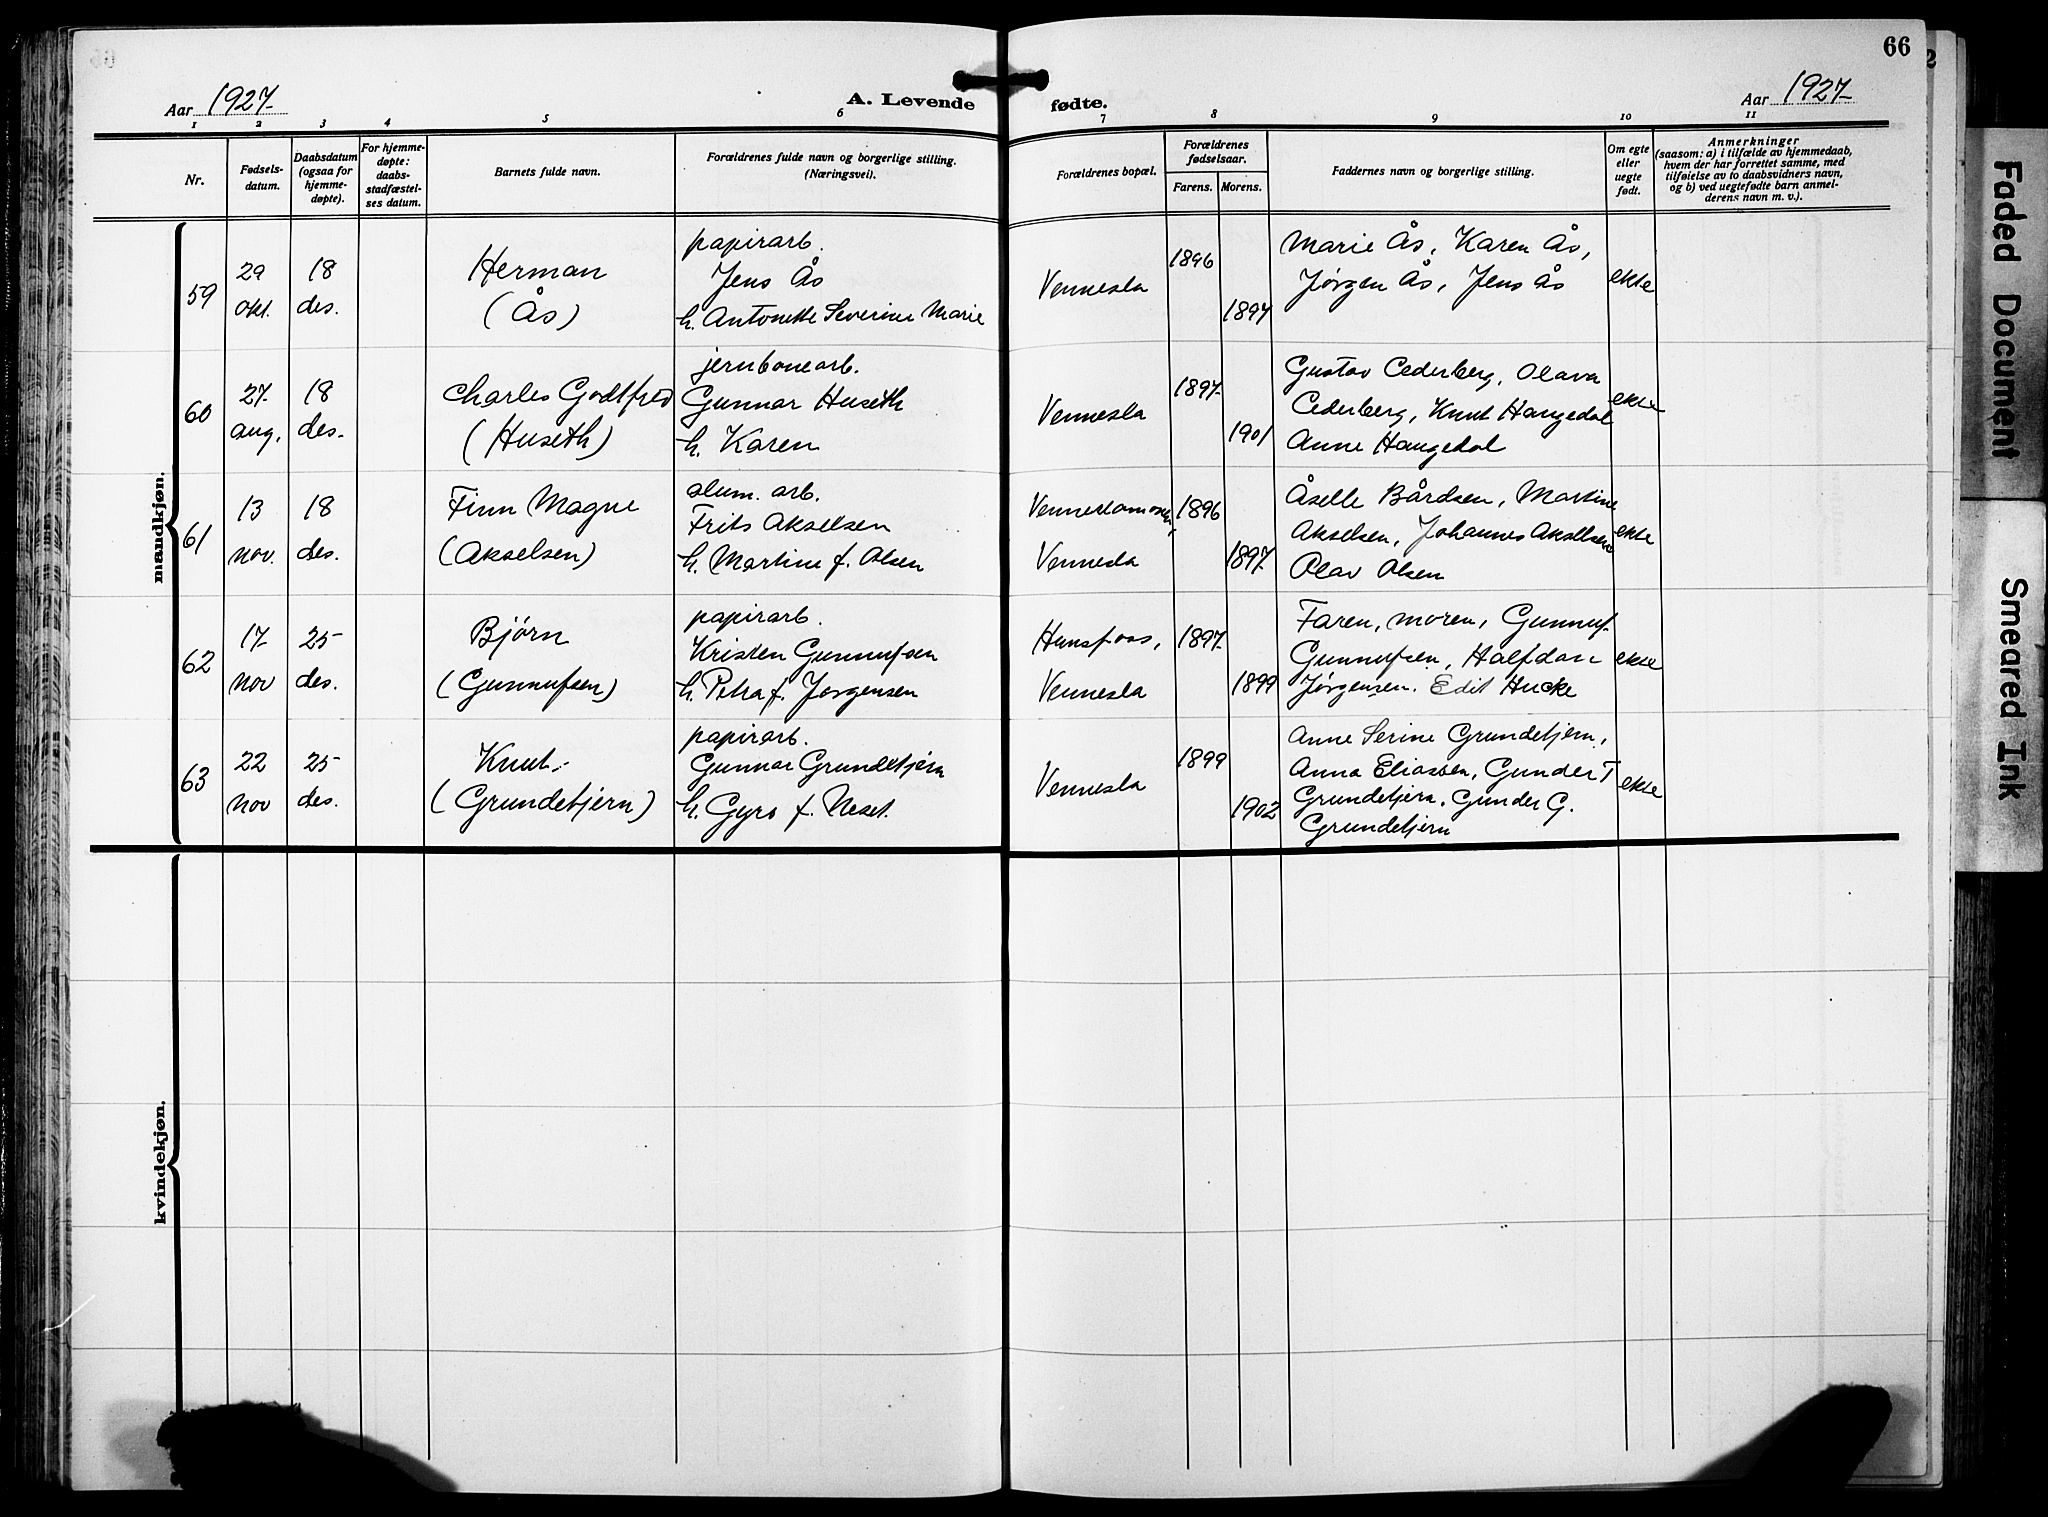 66
Aar 1927
A. Levende fødte.
Aar 1927
1 2 3 4 5 6 7 8 9 10 11
Nr.
Fødsels-
datum.
Daabsdatum
(ogsaa for
hjemme-
døpte).
For hjemme-
døpte:
daabs-
stadfæstel-
ses datum.
Barnets fulde navn.
Forældrenes fulde navn og borgerlige stilling.
(Næringsvei).
Forældrenes bopæl.
Forældrenes
fødselsaar.
Farens. Morens.
Faddernes navn og borgerlige stilling.
Om egte
eller
uegte
født.
Anmerkninger
(saasom: a) i tilfælde av hjemmedaab,
hvem der har forrettet samme, med
tilføielse av to daabsvidners navn,
og b) ved uegtefødte barn anmel-
derens navn m. v.).
mandkjøn.
59
29
okt.
18
des.
Herman
(Ås)
papirarb.
Jens Ås
h. Antonette Severine Marie
Vennesla
1896
1897
Marie Ås, Karen Ås,
Jørgen Ås, Jens Ås
ekte
60
27
aug.
18
des.
Charles Godtfred
(Huseth)
jernbanearb.
Gunnar Huseth
h. Karen
Vennesla
1897
1901
Gustav Cederberg, Olava
Cederberg, Knut Haugedal
Anne Haugedal
ekte
61
13
nov.
18
des.
Finn Magne
(Akselsen)
alum. arb.
Frits Akselsen
h. Martine f. Olsen
Venneslamoen,
Vennesla
1896
1897
Åselle Bårdsen, Martine
Akselsen, Johannes Akselsen
Olav Olsen
ekte
62
17
nov
25
des.
Bjørn
(Gunnufsen)
papirarb.
Kristen Gunnufsen
h. Petra f. Jørgensen
Hunsfoss,
Vennesla
1897
1899
Faren, moren, Gunnuf
Gunnufsen, Halfdan
Jørgensen. Edit Hucke
ekte
63
22
nov
25
des.
Knut
(Grundetjern)
papirarb.
Gunnar Grundetjern
h. Gyro f. Neset.
Vennesla
1899
1902
Anne Serine Grundetjern,
Anna Eliassen, Gunder T
Grundetjern, Gunder G.
Grundetjern
ekte
kvindekjøn.
Faded Document
Smeared Ink